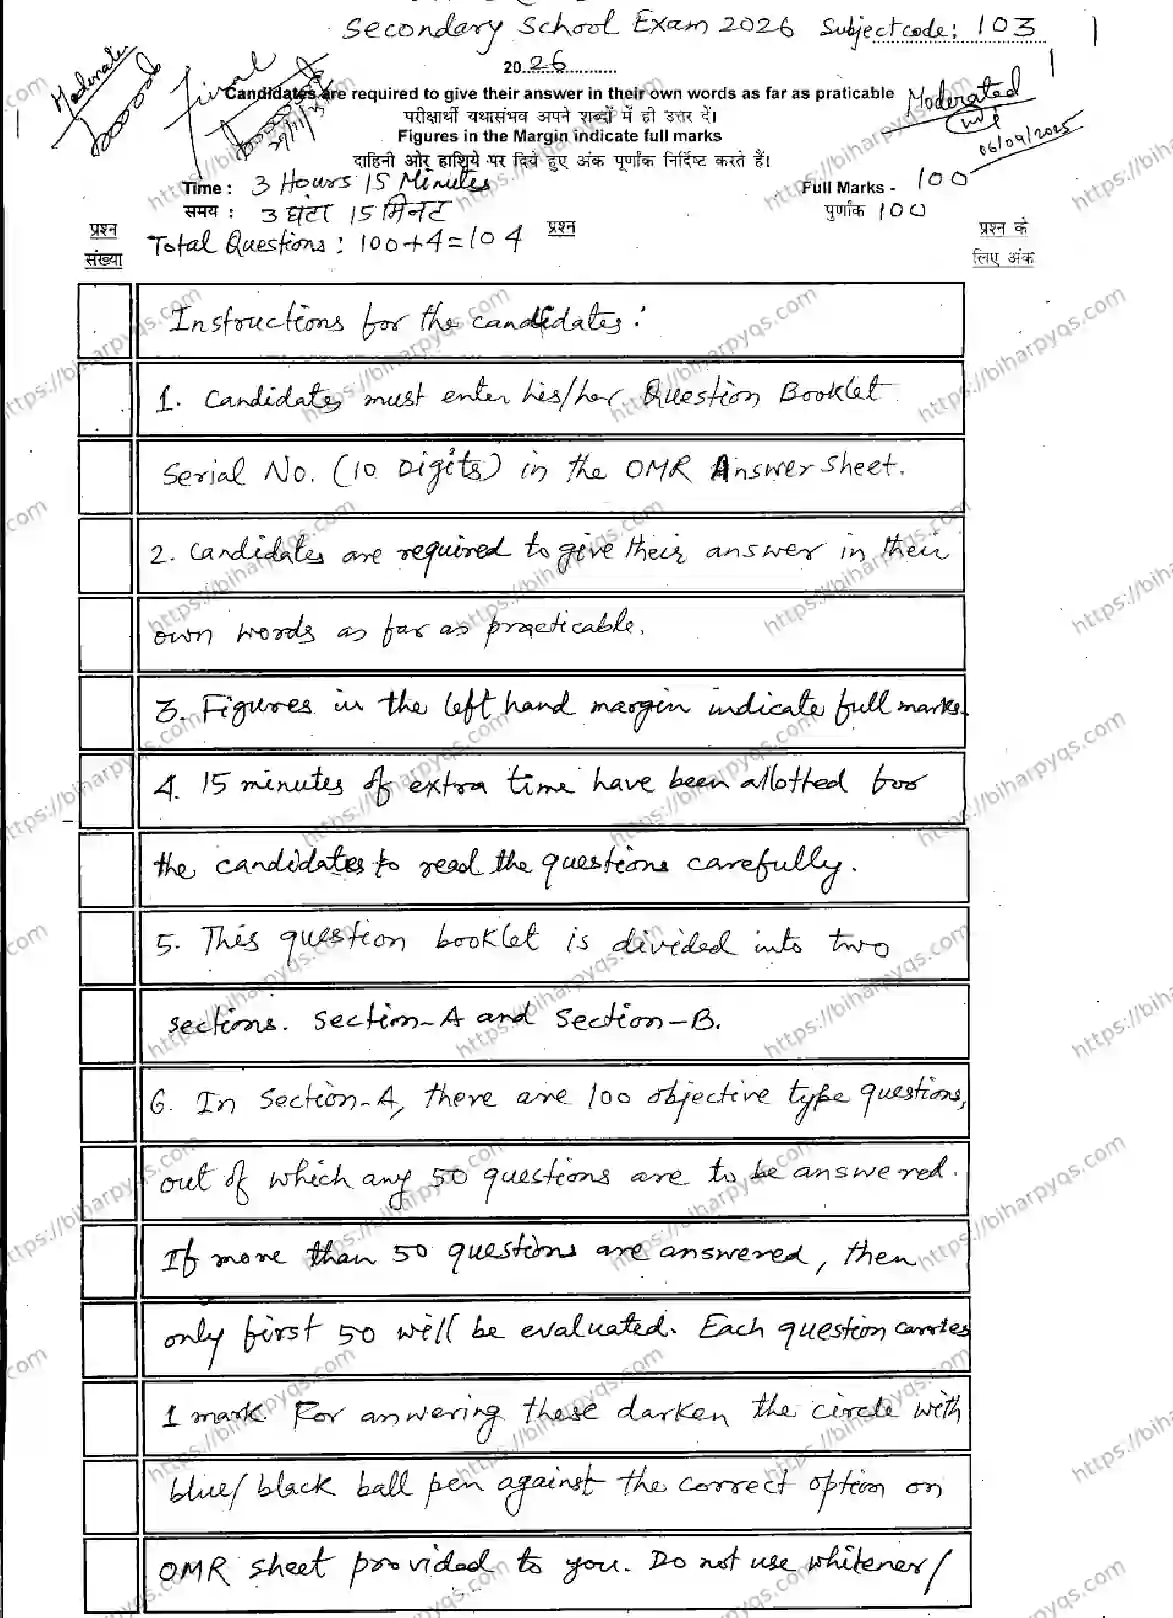 Secondary School Exam 2026 Subject code: 103
2026
Moderated
Final
Candidates are required to give their answer in their own words as far as praticable
Moderated
परीक्षार्थी यथासंभव अपने शब्दों में ही उत्तर दें।
06/09/2025
Figures in the Margin indicate full marks
दाहिनी ओर हाशिये पर दिये हुए अंक पूर्णांक निर्दिष्ट करते हैं।
Time : 3 Hours 15 Minutes
Full Marks - 100
समय : 3 घंटा 15 मिनट
पुर्णांक 100
प्रश्न संख्या
Total Questions : 100+4=104
प्रश्न
प्रश्न के लिए अंक
Instructions for the candidates :
1. Candidates must enter his/her Question Booklet
Serial No. (10 Digits) in the OMR Answer Sheet.
2. Candidates are required to give their answer in their
own words as far as practicable.
3. Figures in the left hand margin indicate full marks.
4. 15 minutes of extra time have been allotted for
the candidates to read the questions carefully.
5. This question booklet is divided into two
sections. Section-A and Section-B.
6. In Section-A, there are 100 objective type questions,
out of which any 50 questions are to be answered.
If more than 50 questions are answered, then
only first 50 will be evaluated. Each question carries
1 mark. For answering these darken the circle with
blue/ black ball pen against the correct option on
OMR sheet provided to you. Do not use whitener/
https://biharpyqs.com